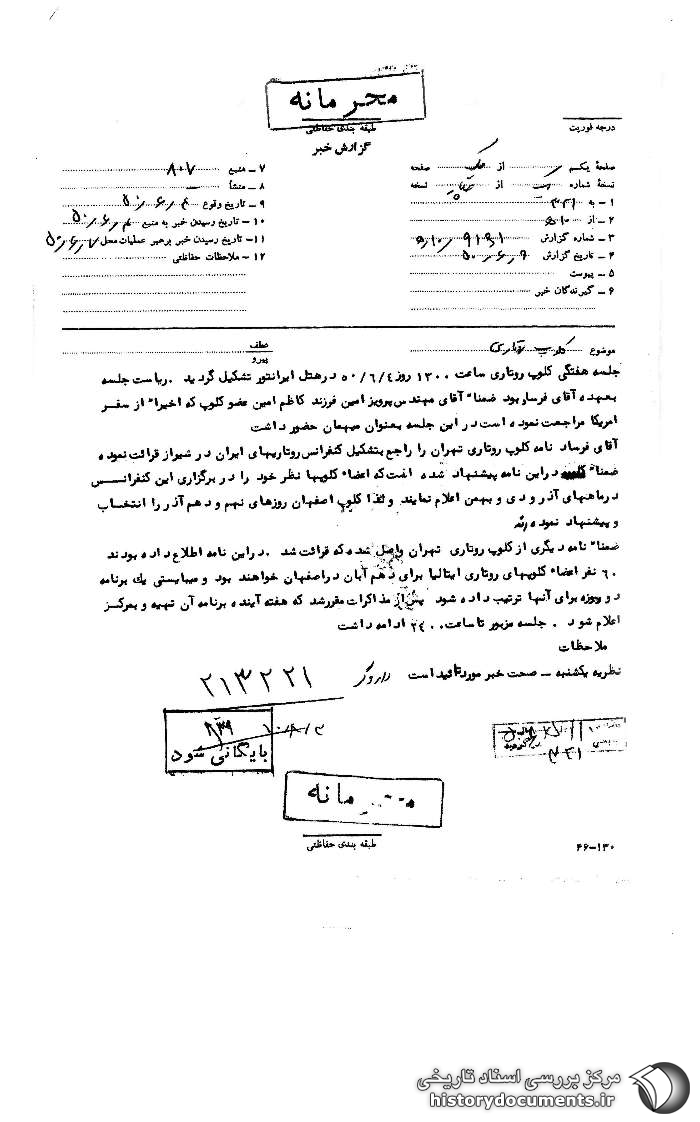 محرمانه
طبقه بندی حفاظتی
گزارش خبر
درجه فوریت
صفحه یکم از یک صفحه
نسخه شماره از نسخه
۱ – به ۳۴۱
۲ – از ۵۱۰
۳ – شماره گزارش ۵۱۰/۹۱۵۱
۴ – تاریخ گزارش ۵۰/۶/۹
۵ – پیوست
۶ – گیرندگان خبر
۷ – منبع ۸۰۷
۸ – منشأ
۹ – تاریخ وقوع ۵۰/۶/۴
۱۰ – تاریخ رسیدن خبر به منبع ۵۰/۶/۴
۱۱ – تاریخ رسیدن خبر برهبر عملیات محل ۵۰/۶/۷
۱۲ – ملاحظات حفاظتی
موضوع کلوپ روتاری
عطف
پیرو
جلسه هفتگی کلوپ روتاری ساعت ۱۳۰۰ روز ۵۰/۶/۴ در هتل ایرانتور تشکیل گردید . ریاست جلسه
بعهده آقای فرساد بود ضمنا" آقای مهندس پرویز امین فرزند کاظم امین عضو کلوپ که اخیرا" از سفر
امریکا مراجعت نموده است در این جلسه بعنوان میهمان حضور داشت
آقای فرساد نامه کلوپ روتاری تهران را راجع بتشکیل کنفرانس روتاریهای ایران در شیراز قرائت نموده
ضمنا" در این نامه پیشنهاد شده است که اعضاء کلوپها نظر خود را در برگزاری این کنفرانس
در ماههای آذر و دی و بهمن اعلام نمایند و لذا کلوپ اصفهان روزهای نهم و دهم آذر را انتخاب
و پیشنهاد نموده اند
ضمنا" نامه دیگری از کلوپ روتاری تهران واصل شده که قرائت شد . در این نامه اطلاع داده بودند
۶۰ نفر اعضاء کلوپهای روتاری ایتالیا برای دهم آبان در اصفهان خواهند بود و میبایستی یک برنامه
دو روزه برای آنها ترتیب داده شود پس از مذاکرات مقرر شد که هفته آینده برنامه آن تهیه و بمرکز
اعلام شود . جلسه مزبور تا ساعت ۲۴۰۰ ادامه داشت
ملاحظات
نظریه یکشنبه – صحت خبر مورد تائید است دادوگر
۲۱۳۲۲۱
۸۳۹
بایگانی شود
۳۴۱
محرمانه
طبقه بندی حفاظتی
۴۶-۱۳۰
مرکز بررسی اسناد تاریخی
historydocuments.ir